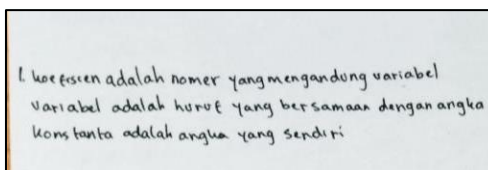 1. koefesien adalah nomer yang mengandung variabel
variabel adalah huruf yang bersamaan dengan angka
konstanta adalah angka yang sendiri